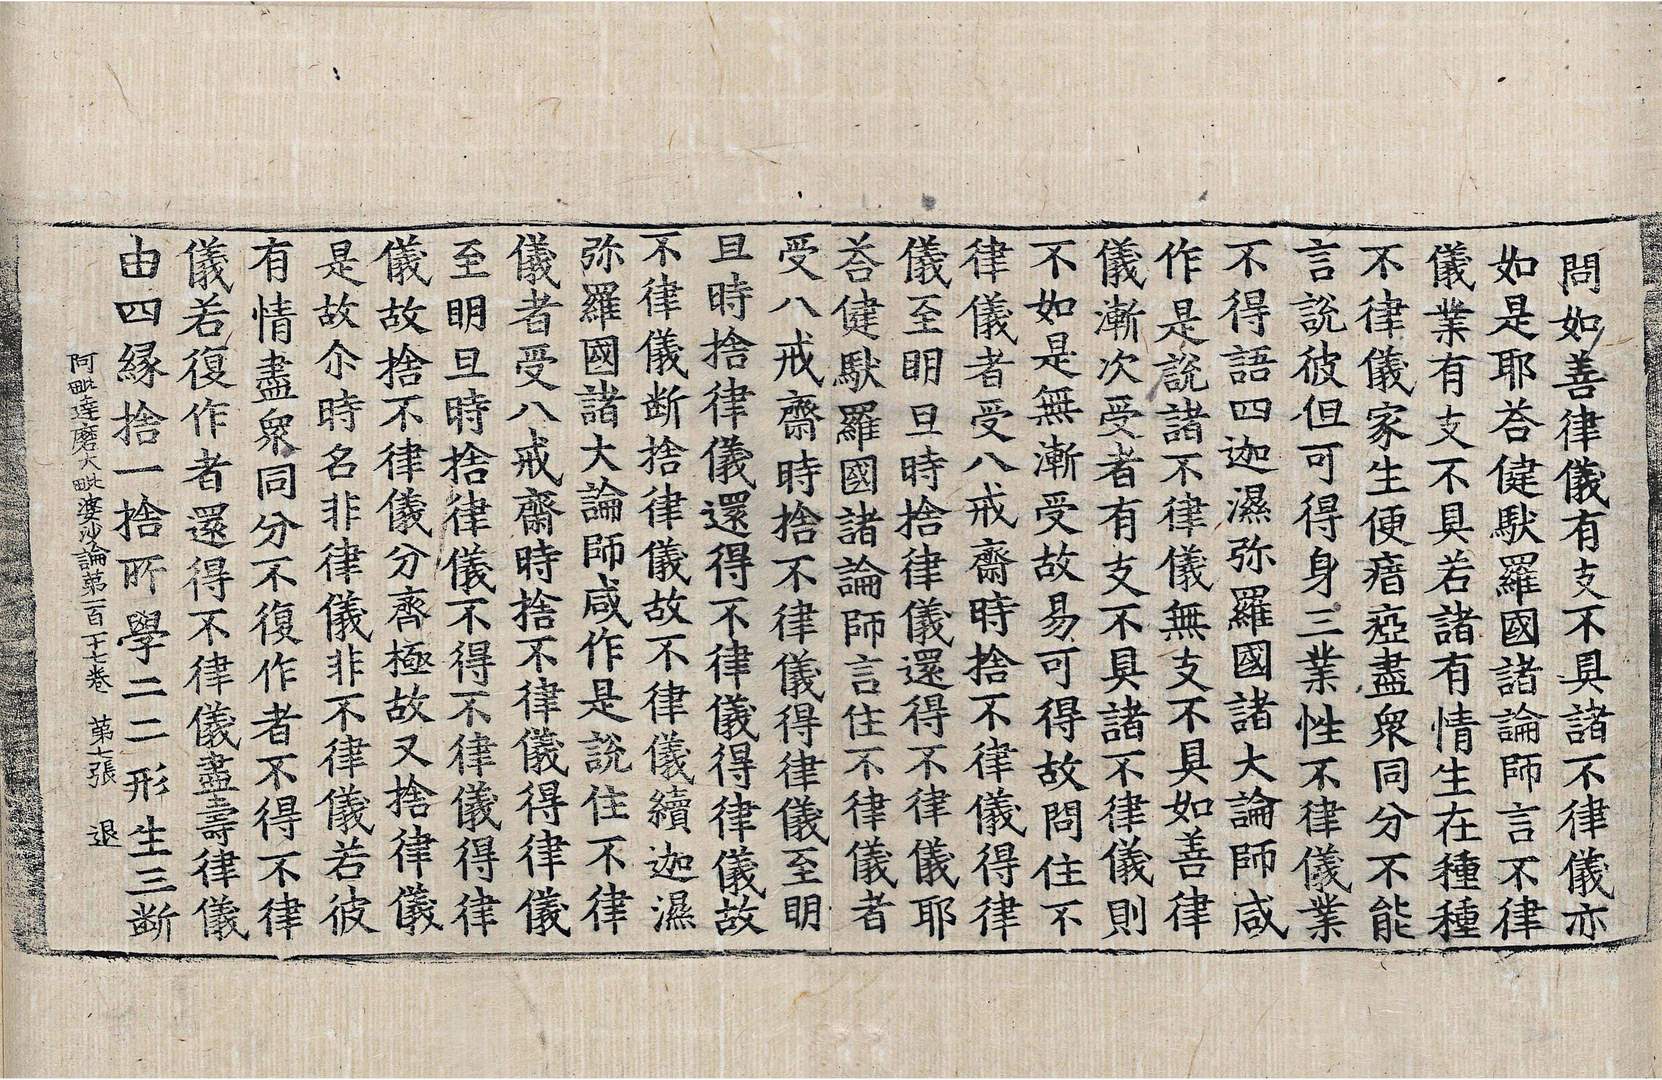 問如善律儀有支不具諸不律儀亦
如是耶荅健馱羅國諸論師言不律
儀業有支不具若諸有情生在種種
不律儀家生便瘖瘂盡眾同分不能
言說彼但可得身三業性不律儀業
不得語四迦濕弥羅國諸大論師咸
作是說諸不律儀無支不具如善律
儀漸次受者有支不具諸不律儀則
不如是無漸受故易可得故問住不
律儀者受八戒齋時捨不律儀得律
儀至明旦時捨律儀還得不律儀耶
荅健馱羅國諸論師言住不律儀者
受八戒齋時捨不律儀得律儀至明
旦時捨律儀還得不律儀得律儀故
不律儀断捨律儀故不律儀續迦濕
弥羅國諸大論師咸作是說住不律
儀者受八戒齋時捨不律儀得律儀
至明旦時捨律儀不得不律儀得律
儀故捨不律儀分齊極故又捨律儀
是故尒時名非律儀非不律儀若彼
有情盡眾同分不復作者不得不律
儀若復作者還得不律儀盡壽律儀
由四緣捨一捨所學二二形生三断
阿毗達磨大毗婆沙論第一百一十七卷　第七張　退